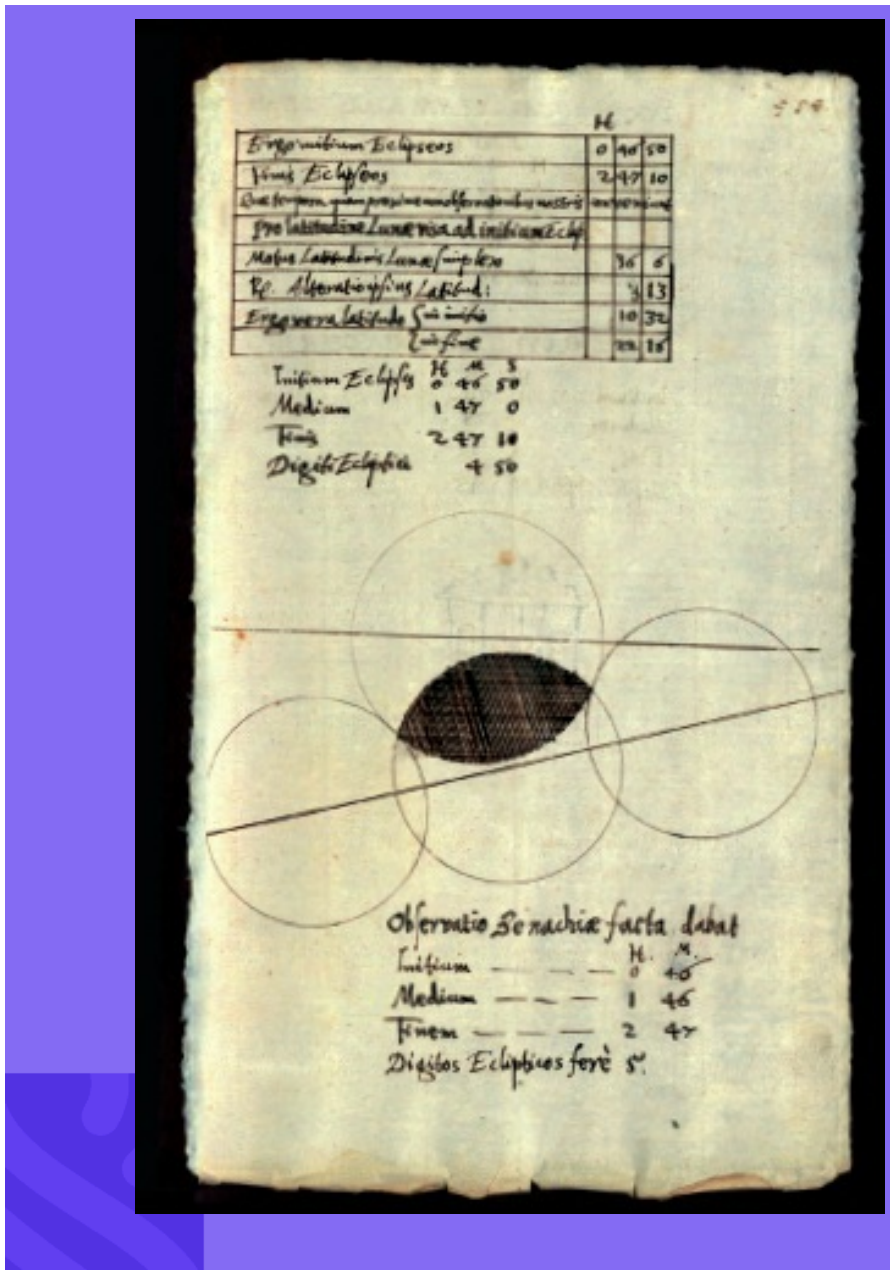 584
H
Ergo initium Eclipseos 0 46 50
Finis Eclipseos 2 47 10
Quæ tempora quam proxime cum observationibus nostris conveniunt
Pro latitudine Lunæ visa ad initium Eclip
Motus Latitudinis Lunæ simplex 36 6
Alteratio ipsius Latitud: 3 13
Ergo vera latitudo in initio 10 32
in fine
H M S
Initium Eclipsis 0 46 50
Medium 1 47 0
Finis 2 47 10
Digiti Ecliptici 4 50
Observatio facta dabat
H. M.
Initium — — — 0 46
Medium — — — 1 46
Finem — — — 2 47
Digitos Eclipticos ferè 5.